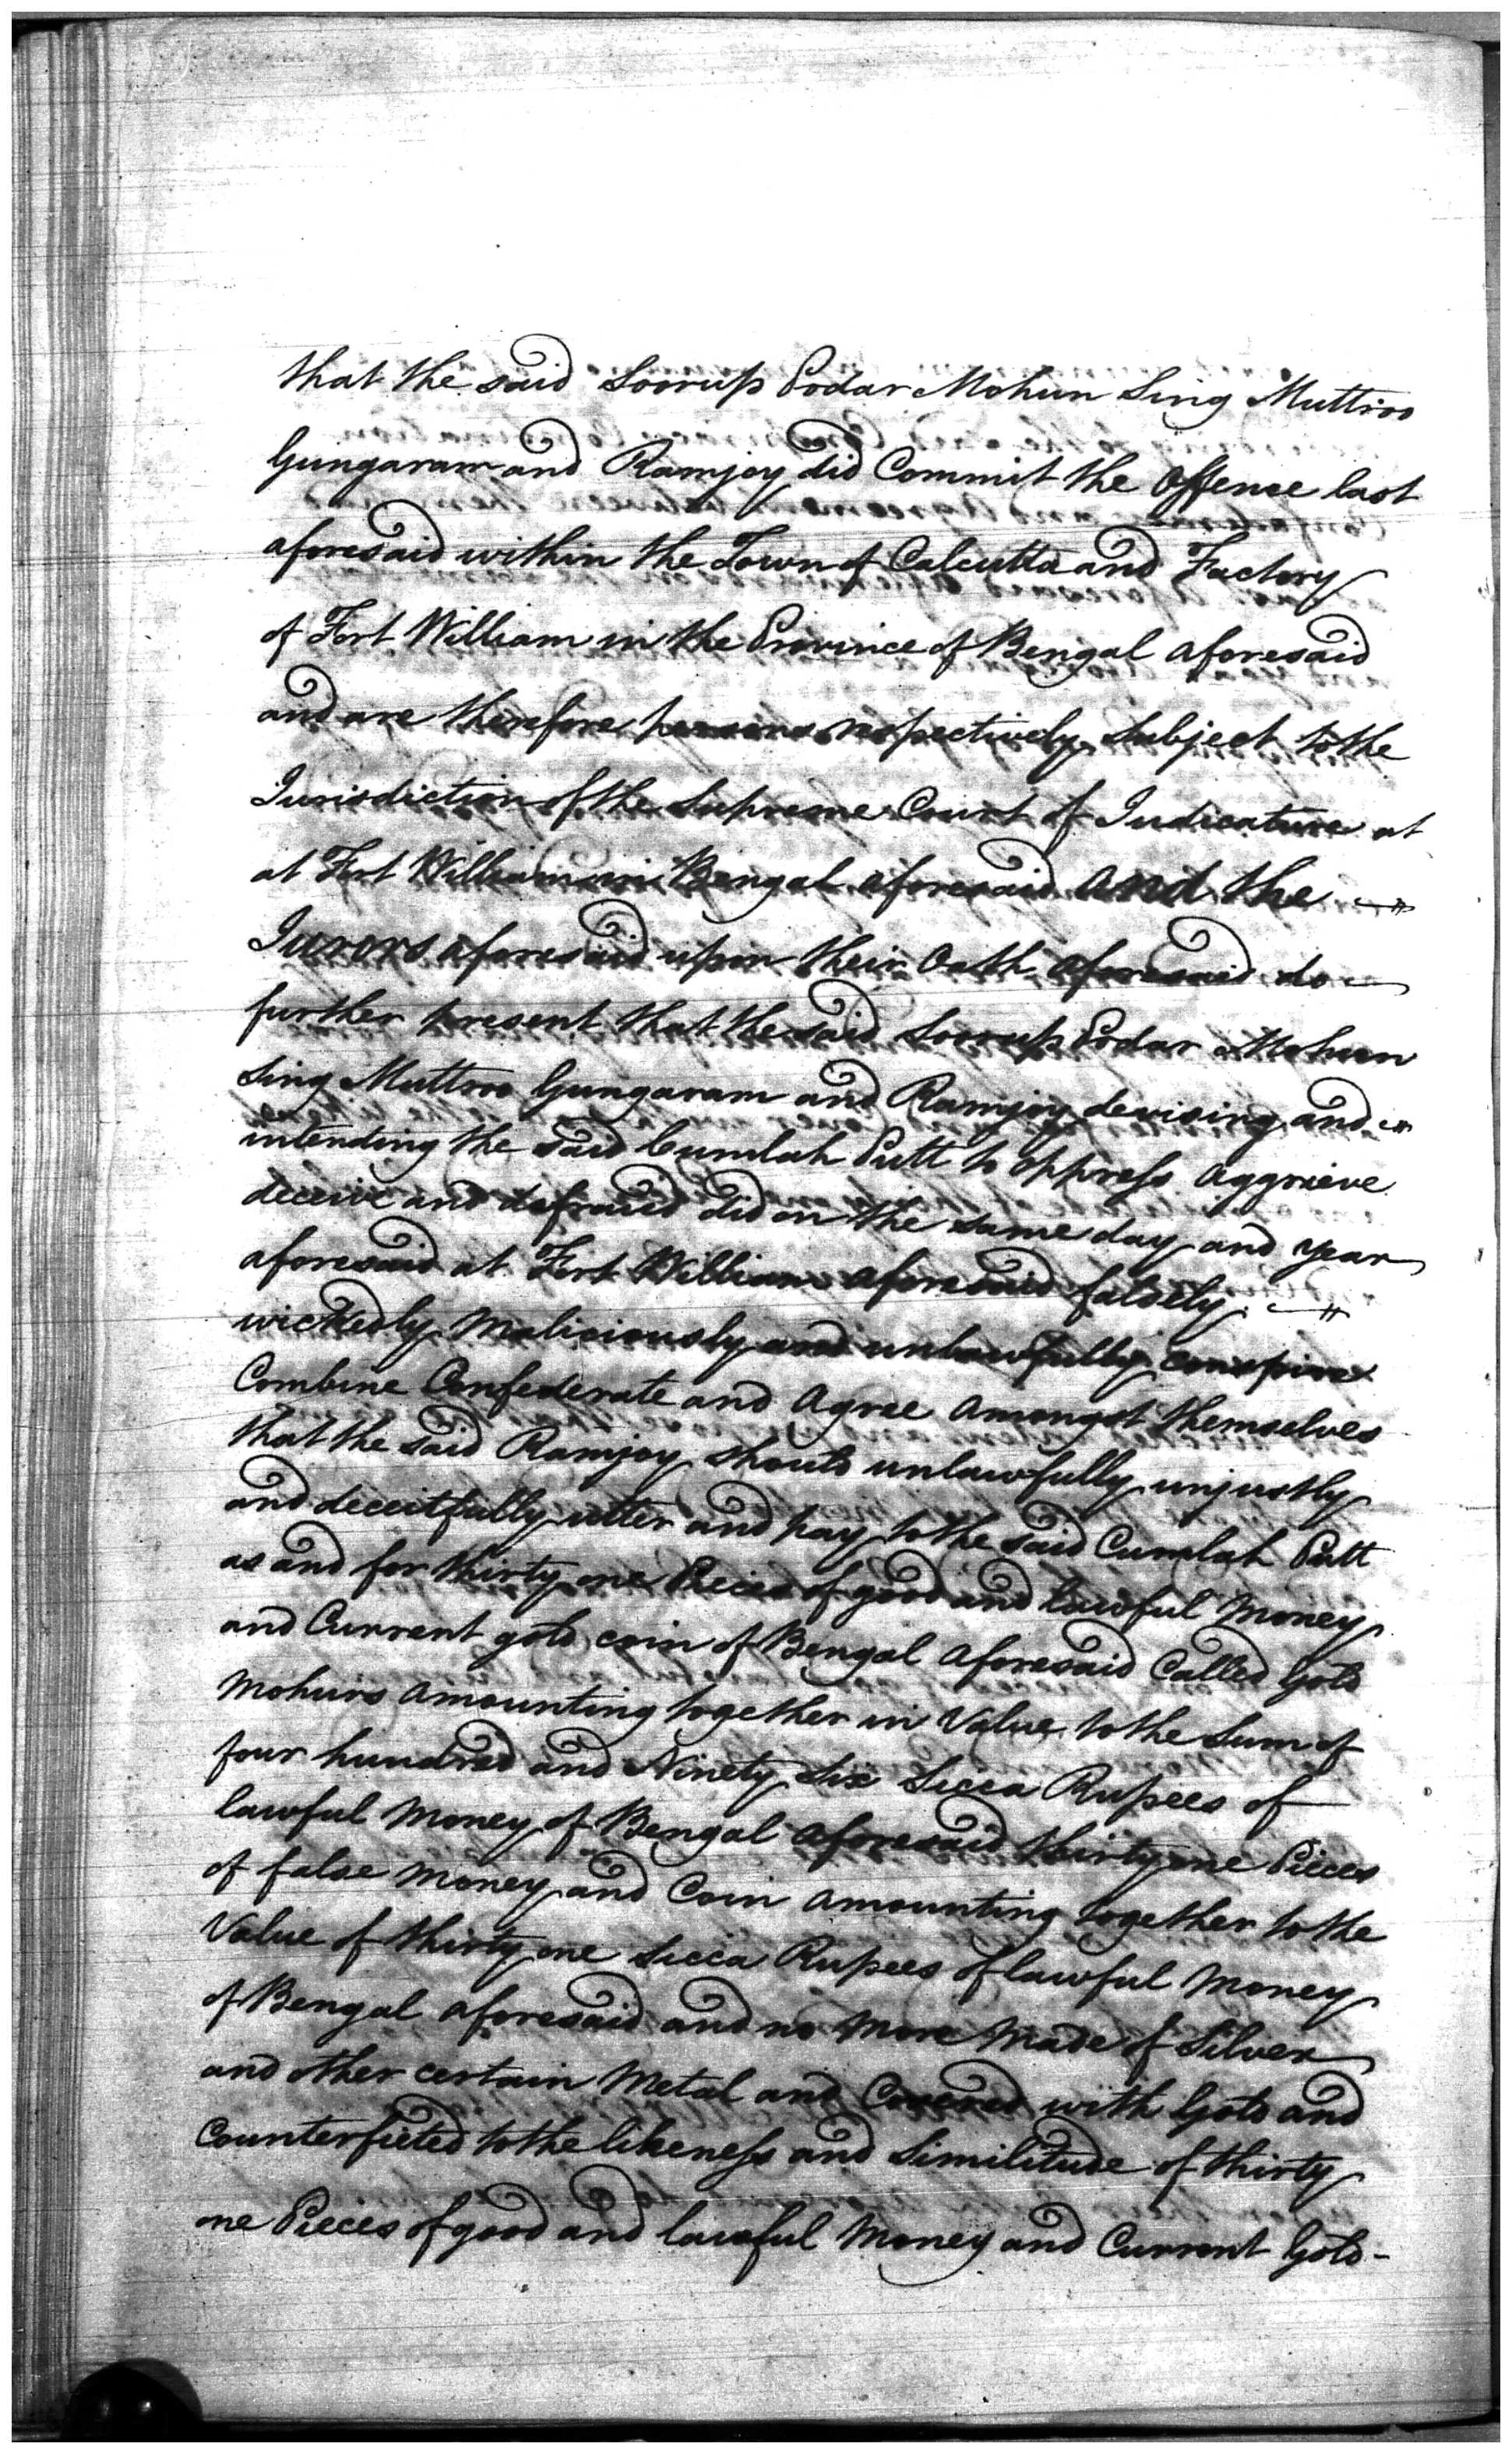 that the said Soorup Podar Mohun Sing Muttroo
Gungaram and Ramjoy did Commit the Offence last
aforesaid within the Town of Calcutta and Factory
of Fort William in the Province of Bengal aforesaid
and are therefore persons respectively Subject to the
Jurisdiction of the Supreme Court of Judicature at
at Fort William in Bengal aforesaid and the
Jurors aforesaid upon their Oath aforesaid do
further present that the said Soorup Podar Mohun
Sing Muttroo Gungaram and Ramjoy devising and
intending the said Cumlah Putt to oppress aggrieve
deceive and defraud did on the same day and year
aforesaid at Fort William aforesaid falsely
wickedly Maliciously and unlawfully conspire
Combine Confederate and Agree amongst themselves
that the said Ramjoy should unlawfully unjustly
and deceitfully utter and pay to the said Cumlah Putt
as and for thirty one Pieces of good and lawful Money
and Current gold coin of Bengal aforesaid Called Gold
Mohurs amounting together in Value to the Sum of
four hundred and Ninety Six Sicca Rupees of
lawful Money of Bengal aforesaid thirty one Pieces
of false Money and Coin amounting together to the
Value of thirty one Sicca Rupees of lawful Money
of Bengal aforesaid and no more Made of Silver
and other certain Metal and Covered with Gold and
Counterfieted to the likeness and Similitude of thirty
one Pieces of good and lawful Money and Current Gold-